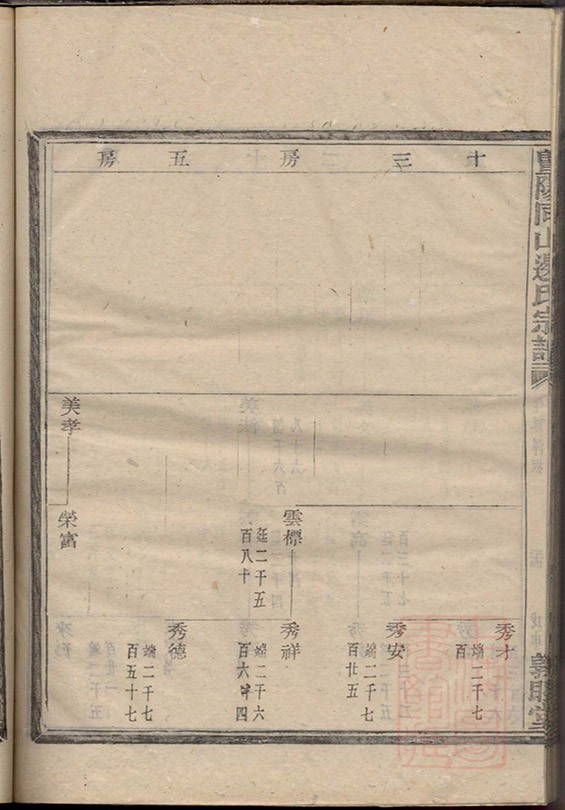 暨陽同山邊氏宗譜
敦睦堂
十三房
五房
秀才
端二千七
百
秀安
端二千七
百廿五
雲標
廷二千五
百八十
秀祥
端二千六
百六十四
秀德
端二千七
百五十七
美孝
榮富